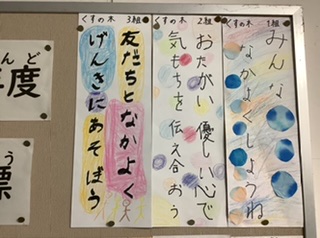 くすの木 1組
みんな
なかよくしようね
くすの木 2組
おたがい 優しい心で
気もちを 伝え合おう
くすの木 3組
友だちとなかよく
げんきにあそぼう
んど
年度
う
標